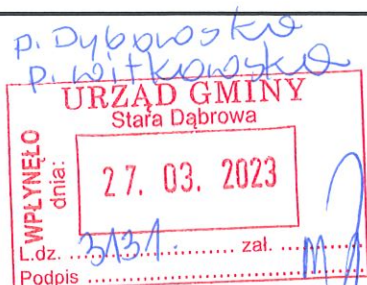 p. Dybowska
p. Witkowska
URZĄD GMINY
Stara Dąbrowa
WPŁYNĘŁO
dnia:
27. 03. 2023
L.dz. 3131. zał.
Podpis